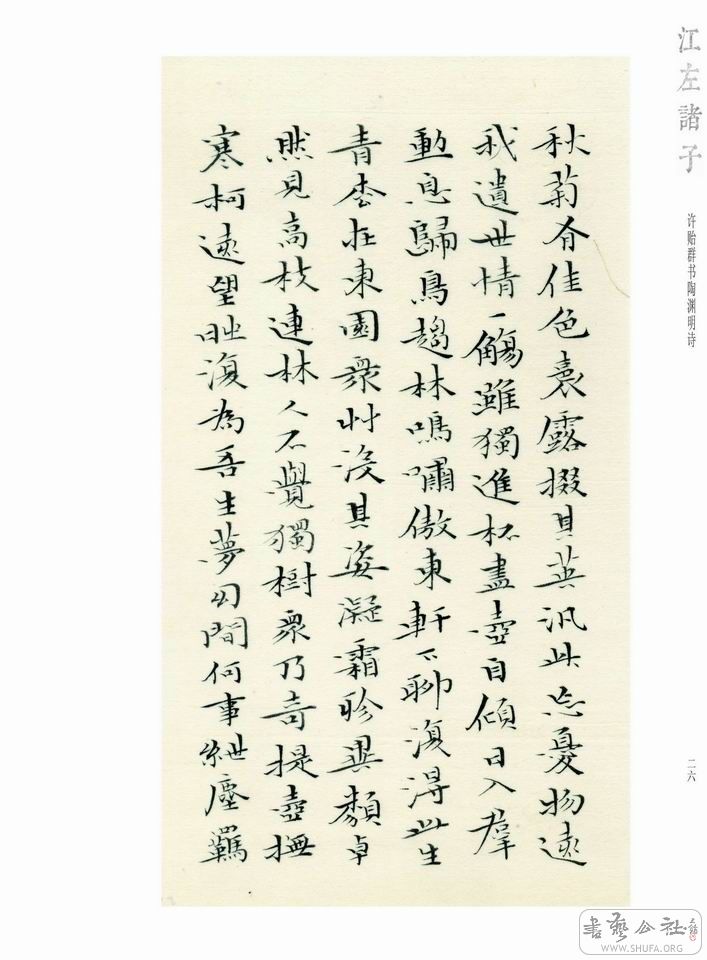 江左諸子
许贻群书陶渊明诗
二六
秋菊有佳色裛露掇其英汎此忘憂物遠
我遺世情一觴雖獨進杯盡壺自傾日入羣
動息歸鳥趨林鳴嘯傲東軒下聊復得此生
青松在東園衆艸没其姿凝霜殄異類卓
然見高枝連林人不覺獨樹衆乃奇提壺撫
寒柯遠望時復為吾生夢幻間何事紲塵羈
書藝公社
WWW.SHUFA.ORG